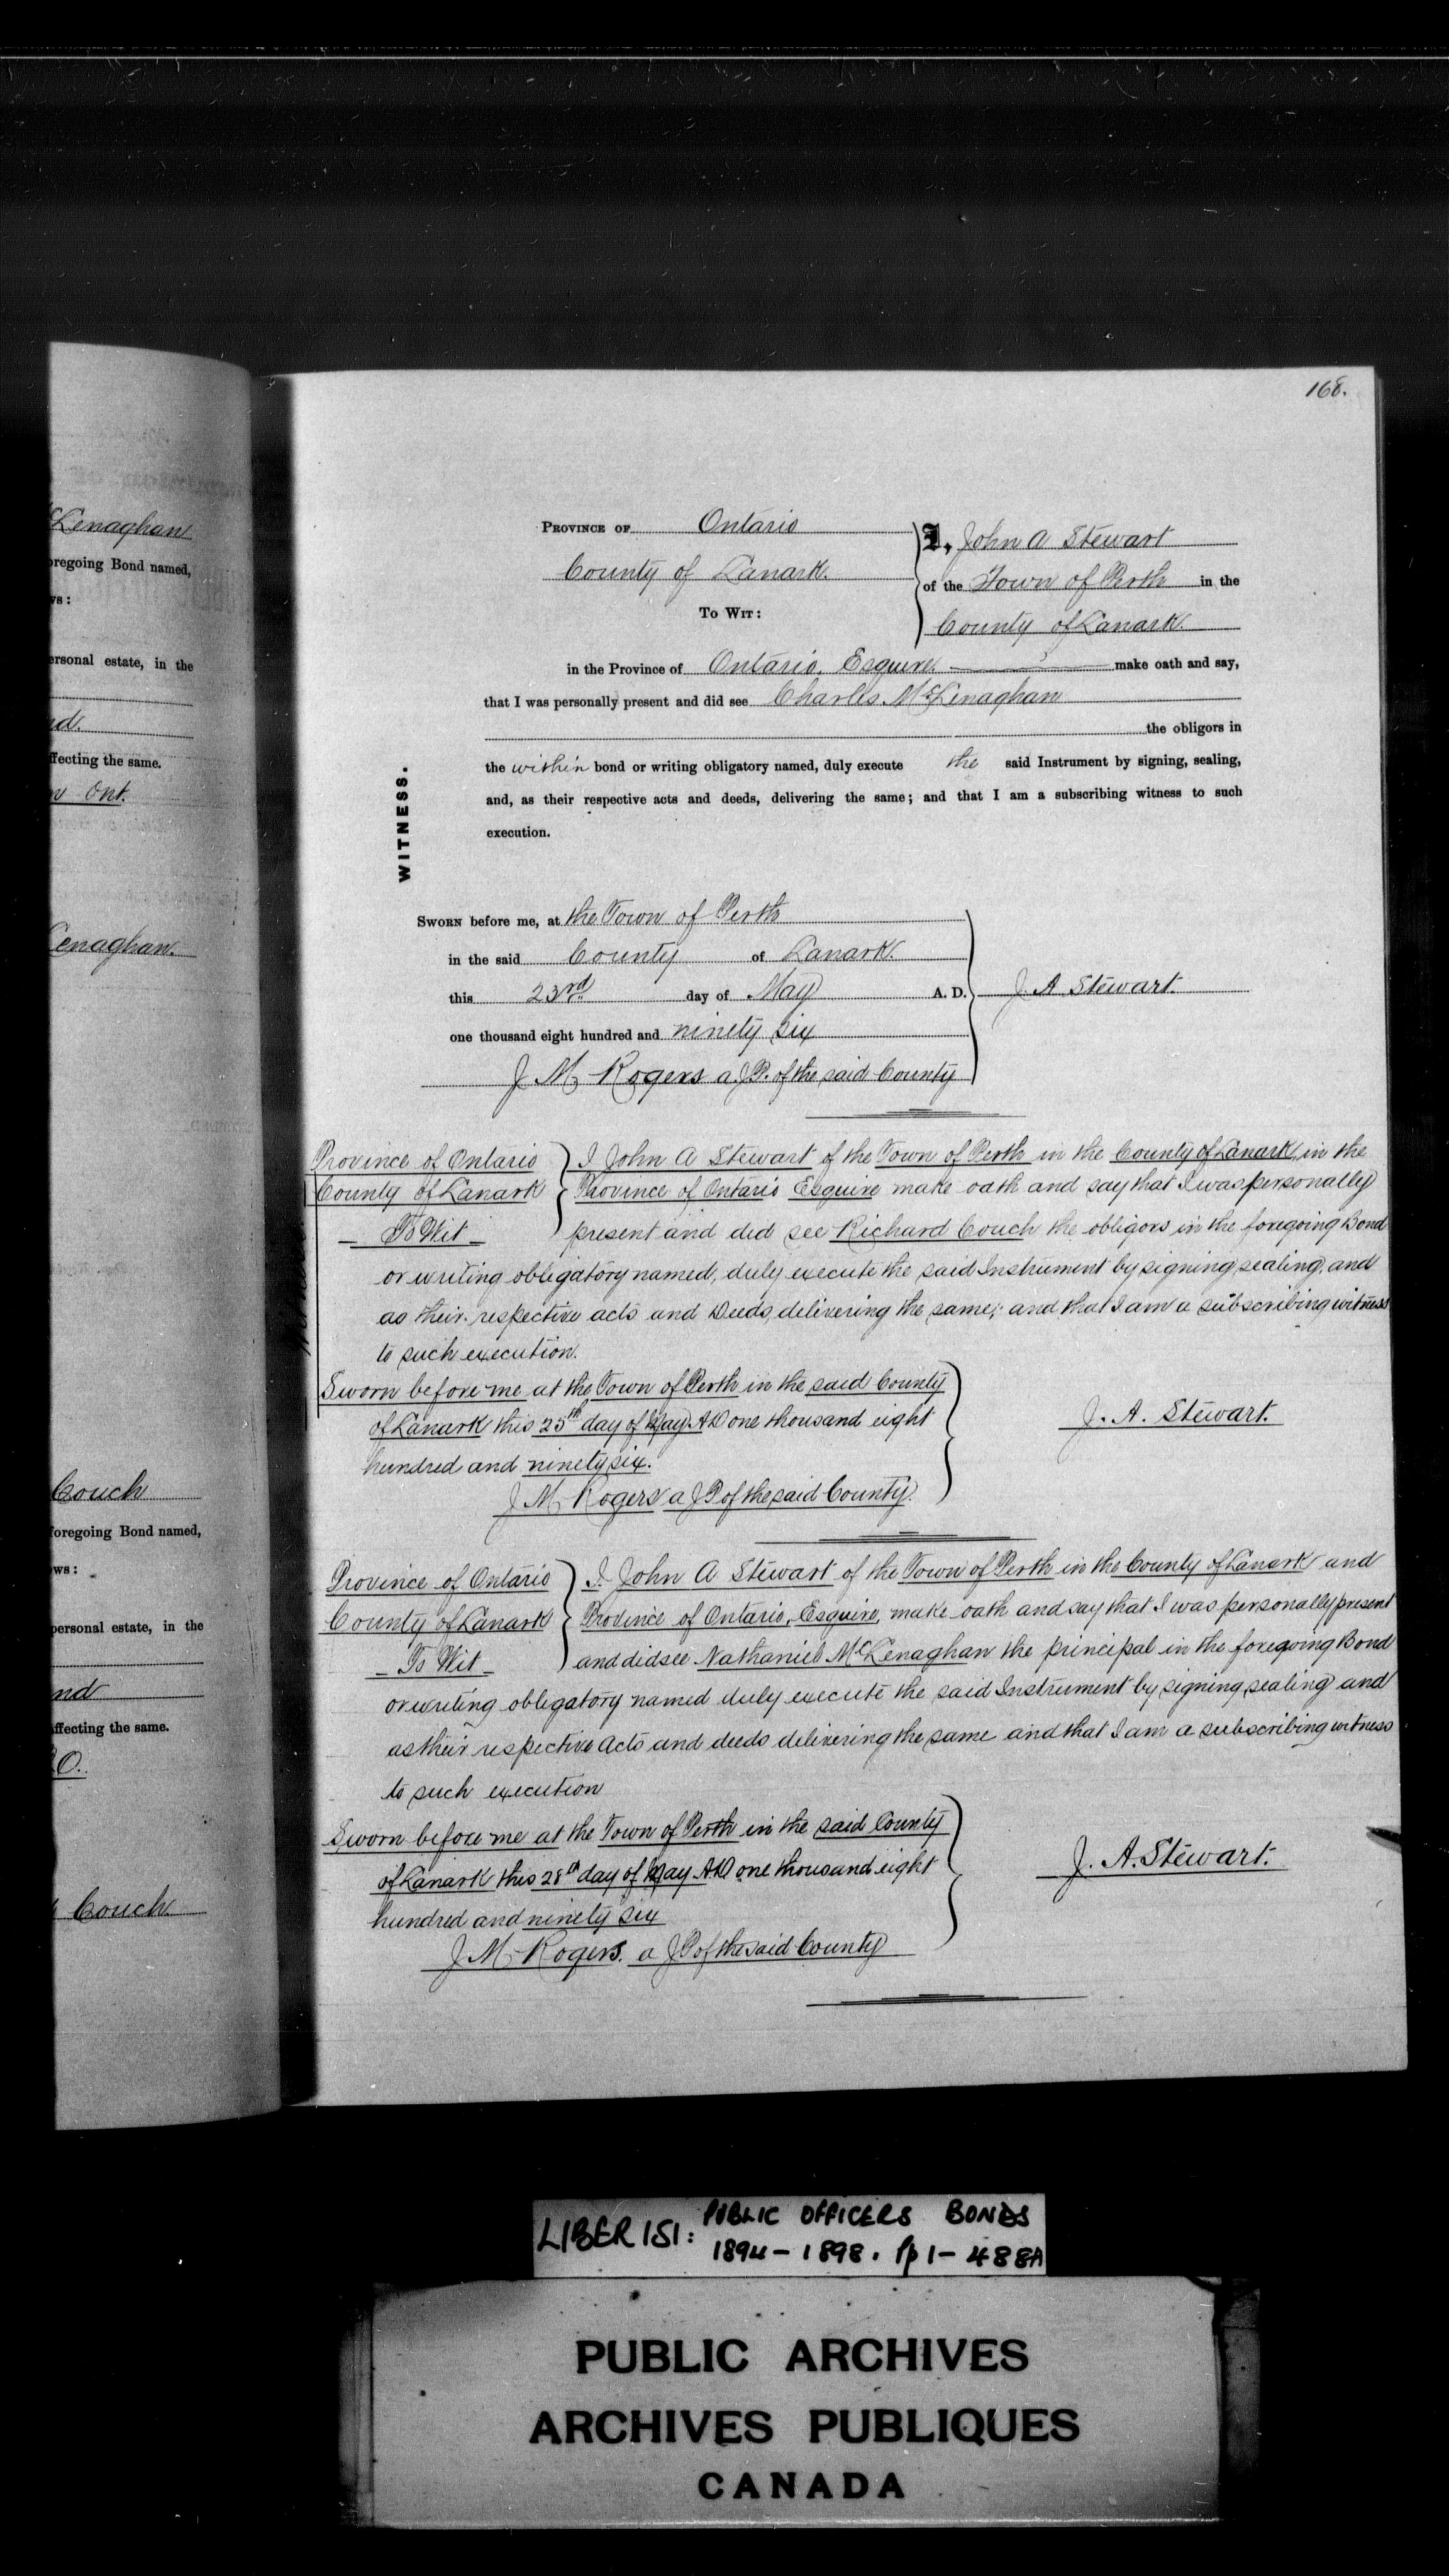 168.
cLenaghan
oregoing Bond named,
ws:
ersonal estate, in the
nd.
ffecting the same.
Ont.
Lenaghan.
Couch
foregoing Bond named,
ws:
personal estate, in the
nd
ffecting the same.
O.
Couch.
PROVINCE OF Ontario
County of Lanark.
TO WIT:
I, John A Stewart
of the Town of Perth in the
County of Lanark.
in the Province of Ontario, Esquire. make oath and say,
that I was personally present and did see Charles McLenaghan
the obligors in
the within bond or writing obligatory named, duly execute the said Instrument by signing, sealing,
and, as their respective acts and deeds, delivering the same; and that I am a subscribing witness to such
execution.
WITNESS.
SWORN before me, at the Town of Perth
in the said County of Lanark.
this 23rd day of May A. D.
one thousand eight hundred and ninety six
J M Rogers a J.P. of the said County
J. A Stewart.
Province of Ontario
County of Lanark
To Wit
I John A Stewart of the Town of Perth in the County of Lanark, in the
Province of Ontario Esquire make oath and say that I was personally
present and did see Richard Couch the obligors in the foregoing Bond
or writing obligatory named, duly execute the said Instrument by signing, sealing, and
as their respective acts and Deeds, delivering the same; and that I am a subscribing witness
to such execution.
Sworn before me at the Town of Perth in the said County
of Lanark this 25th day of May. AD one thousand eight
hundred and ninety six.
J M Rogers a J P of the said County.
J. A. Stewart.
Province of Ontario
County of Lanark
To Wit
I. John A Stewart of the Town of Perth in the County of Lanark and
Province of Ontario, Esquire, make oath and say that I was personally present
and did see Nathaniel McLenaghan the principal in the foregoing Bond
or writing obligatory named duly execute the said Instrument by signing, sealing and
as their respective Acts and deeds delivering the same and that I am a subscribing witness
to such execution
Sworn before me at the Town of Perth in the said County
of Lanark this 28th day of May AD one thousand eight
hundred and ninety six
J M Rogers. a J P of the said County
J. A. Stewart.
LIBER 151: PUBLIC OFFICERS BONDS
1894-1898. pp 1-488A
PUBLIC ARCHIVES
ARCHIVES PUBLIQUES
CANADA